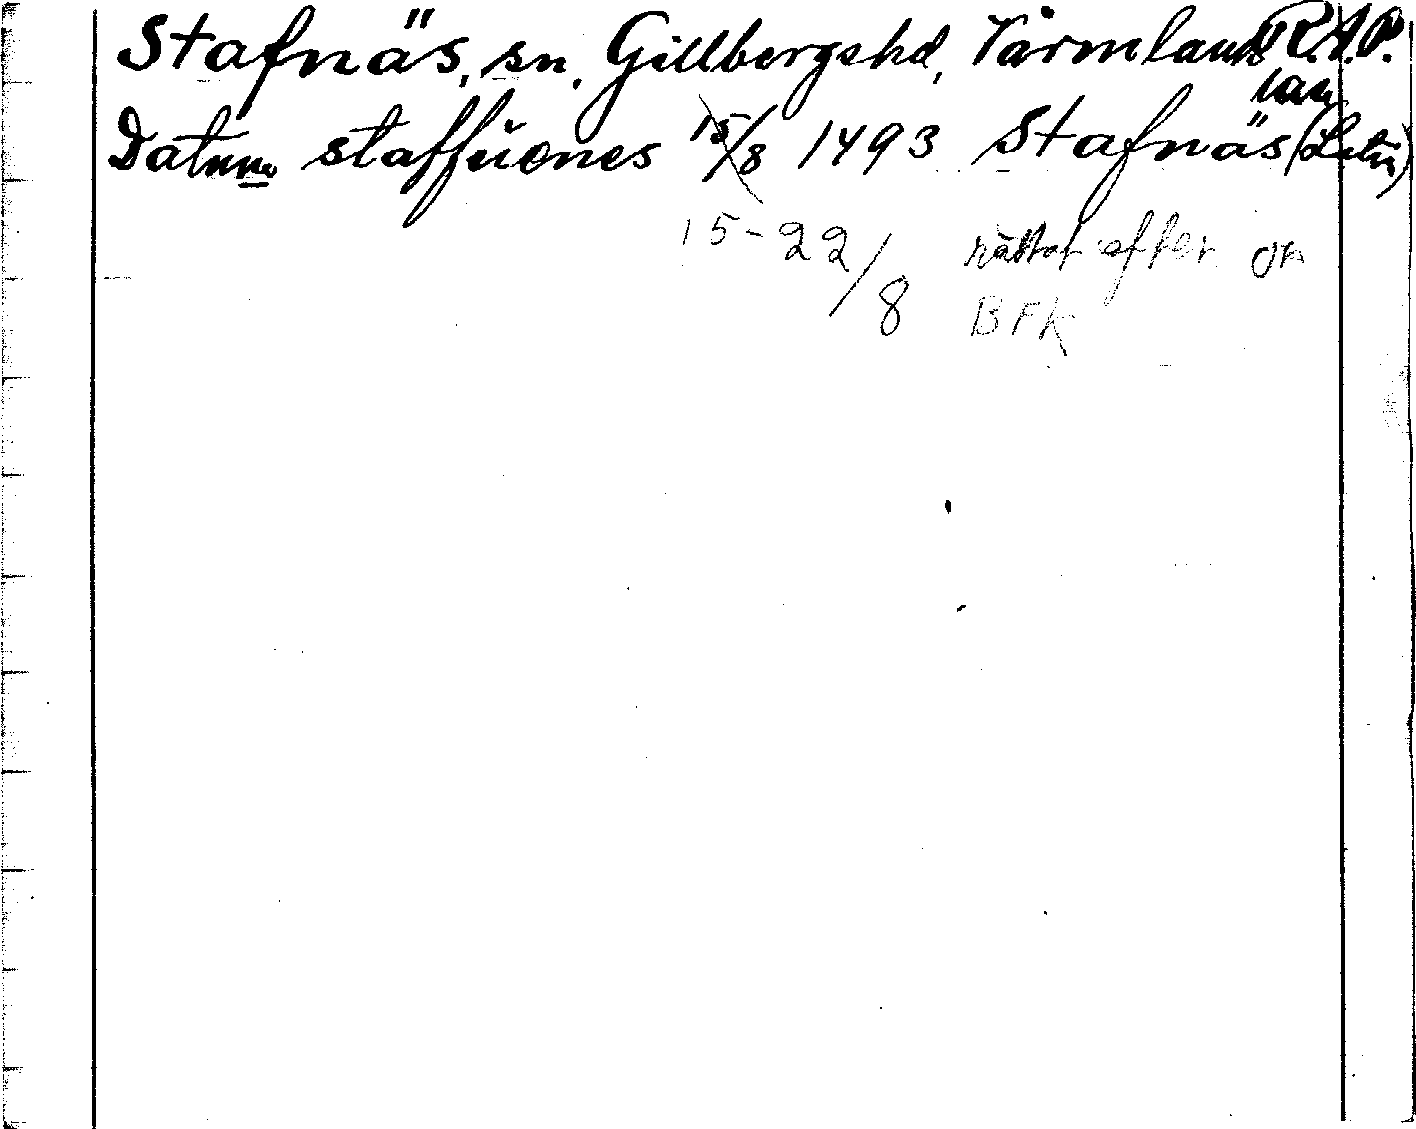 Stafnäs, sn, Gillbergshd, Värmlands R.A.P.
län
Datum staffüones 15/8 1493 Stafnäs (Latin)
15-22/8 rättat efter or
BFK